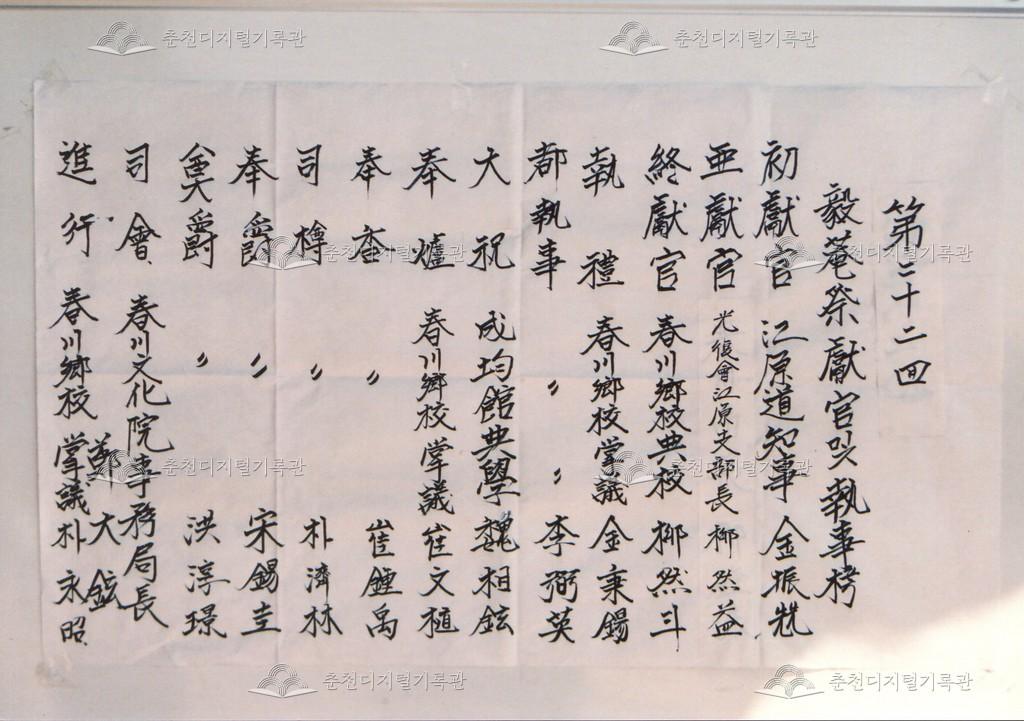 第三十二回
毅菴祭獻官以執事榜
初獻官 江原道知事 金振兟
亜獻官 光復會江原支部長 柳然益
終獻官 春川鄉校典校 柳然斗
執禮 春川鄉校掌議 金秉錫
都執事 〃 〃 李弼英
大祝 成均館典學 魏相鉉
奉爐 春川鄉校掌議 崔文植
奉香 〃 崔鍾禹
司樽 〃 朴濟林
奉爵 〃 宋錫圭
奠爵 〃 洪淳璟
司會 春川文化院事務局長 鄭大鉉
進行 春川鄉校掌議 朴永昭
춘천디지털기록관
춘천디지털기록관
춘천디지털기록관
춘천디지털기록관
춘천디지털기록관
춘천디지털기록관
춘천디지털기록관
춘천디지털기록관